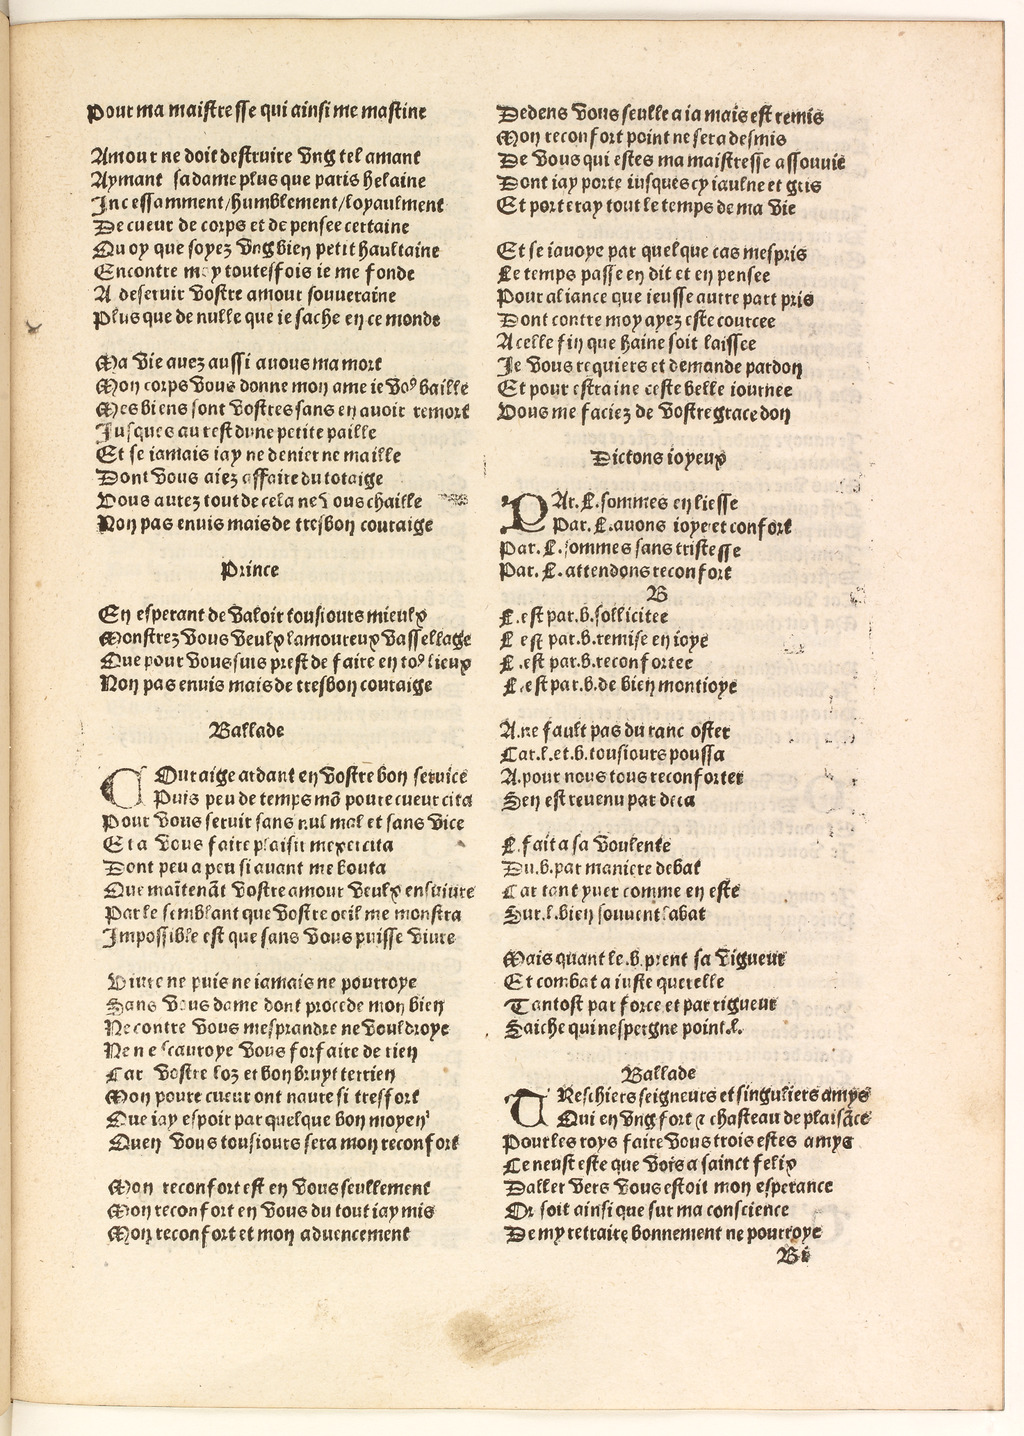 Pour ma maistresse qui ainsi me mastine
Amour ne doit destruire vng tel amant
Aymant sa dame plus que paris helaine
Incessamment/humblement/loyaulment
De cueur de corps et de pensee certaine
Quoy que soyez vng bien petit haultaine
Encontre moy toutesfois ie me fonde
A deseruir vostre amour souueraine
Plus que de nulle que ie sache en ce monde
Ma vie auez aussi auous ma mort
Mon corps vous donne mon ame ie voꝰ baille
Mes biens sont vostres sans en auoir remort
Jusques au rest dune petite paille
Et se iamais iay ne denier ne maille
Dont vous aiez affaire du totaige
Vous aurez tout de cela ne vous chaille
Non pas enuis mais de tresbon couraige
Prince
En esperant de valoir tousiours mieulx
Monstrez vous veulx lamoureux vassellage
Que pour vous suis prest de faire en toꝰ lieux
Non pas enuis mais de tresbon couraige
Ballade
Couraige ardant en vostre bon seruice
Puis peu de temps mõ poure cueur cita
Pour vous seruir sans nul mal et sans vice
Et a vous faire plaisir mexercita
Dont peu a peu si auant me bouta
Que maĩtenãt vostre amour veulx ensuiure
Par le semblant que vostre oeil me monstra
Impossible est que sans vous puisse viure
Viure ne puis ne iamais ne pourroye
Sans vous dame dont procede mon bien
Ne contre vous mesprandre ne vouldroye
Ne ne scauroye vous forfaire de rien
Car vostre loz et bon bruyt terrien
Mon poure cueur ont naure si tresfort
Que iay espoir par quelque bon moyen
Quen vous tousiours sera mon reconfort
Mon reconfort est en vous seullement
Mon reconfort en vous du tout iay mis
Mon reconfort et mon aduencement
Dedens vous seulle a iamais est remis
Mon reconfort point ne sera desmis
De vous qui estes ma maistresse assouuie
Dont iay porte iusques cy iaulne et gris
Et porteray tout le temps de ma vie
Et se iauoye par quelque cas mespris
Le temps passe en dit et en pensee
Pour aliance que ieusse autre part pris
Dont contre moy ayez este cource
A celle fin que haine soit laissee
Je vous requiers et demande pardon
Et pour estraine ceste belle iournee
Vous me faciez de vostre grace don
Dictons ioyeux
PAr.L.sommes en liesse
Par.L.auons ioye et confort
Par.L.sommes sans tristesse
Par.L.attendons reconfort
B
L.est par.b.sollicitee
L est par.b.remise en ioye
L.est par.b.reconfortee
L.est par.b.de bien montioye
A.ne fault pas du ranc oster
Car.l.et.b.tousiours poussa
A.pour nous tous reconforter
Sen est reuenu par deca
L.fait a sa voulente
Du.b.par maniere debat
Car tant yuer comme en este
Sur.l.bien souuent sabat
Mais quant le.b.prent sa vigueur
Et combat a iuste querelle
Tantost par force et par rigueur
Saiche qui nespergne point.l.
Ballade
TReschiers seigneurs et singuliers amys
Qui en vng fort ⁊ chasteau de plaisãce
Pour les roys faire vous trois estes amys
Ce neust este que vois a sainct felix
Daller vers vous estoit mon esperance
Or soit ainsi que sur ma conscience
De my retraire bonnement ne pourroye
Bi